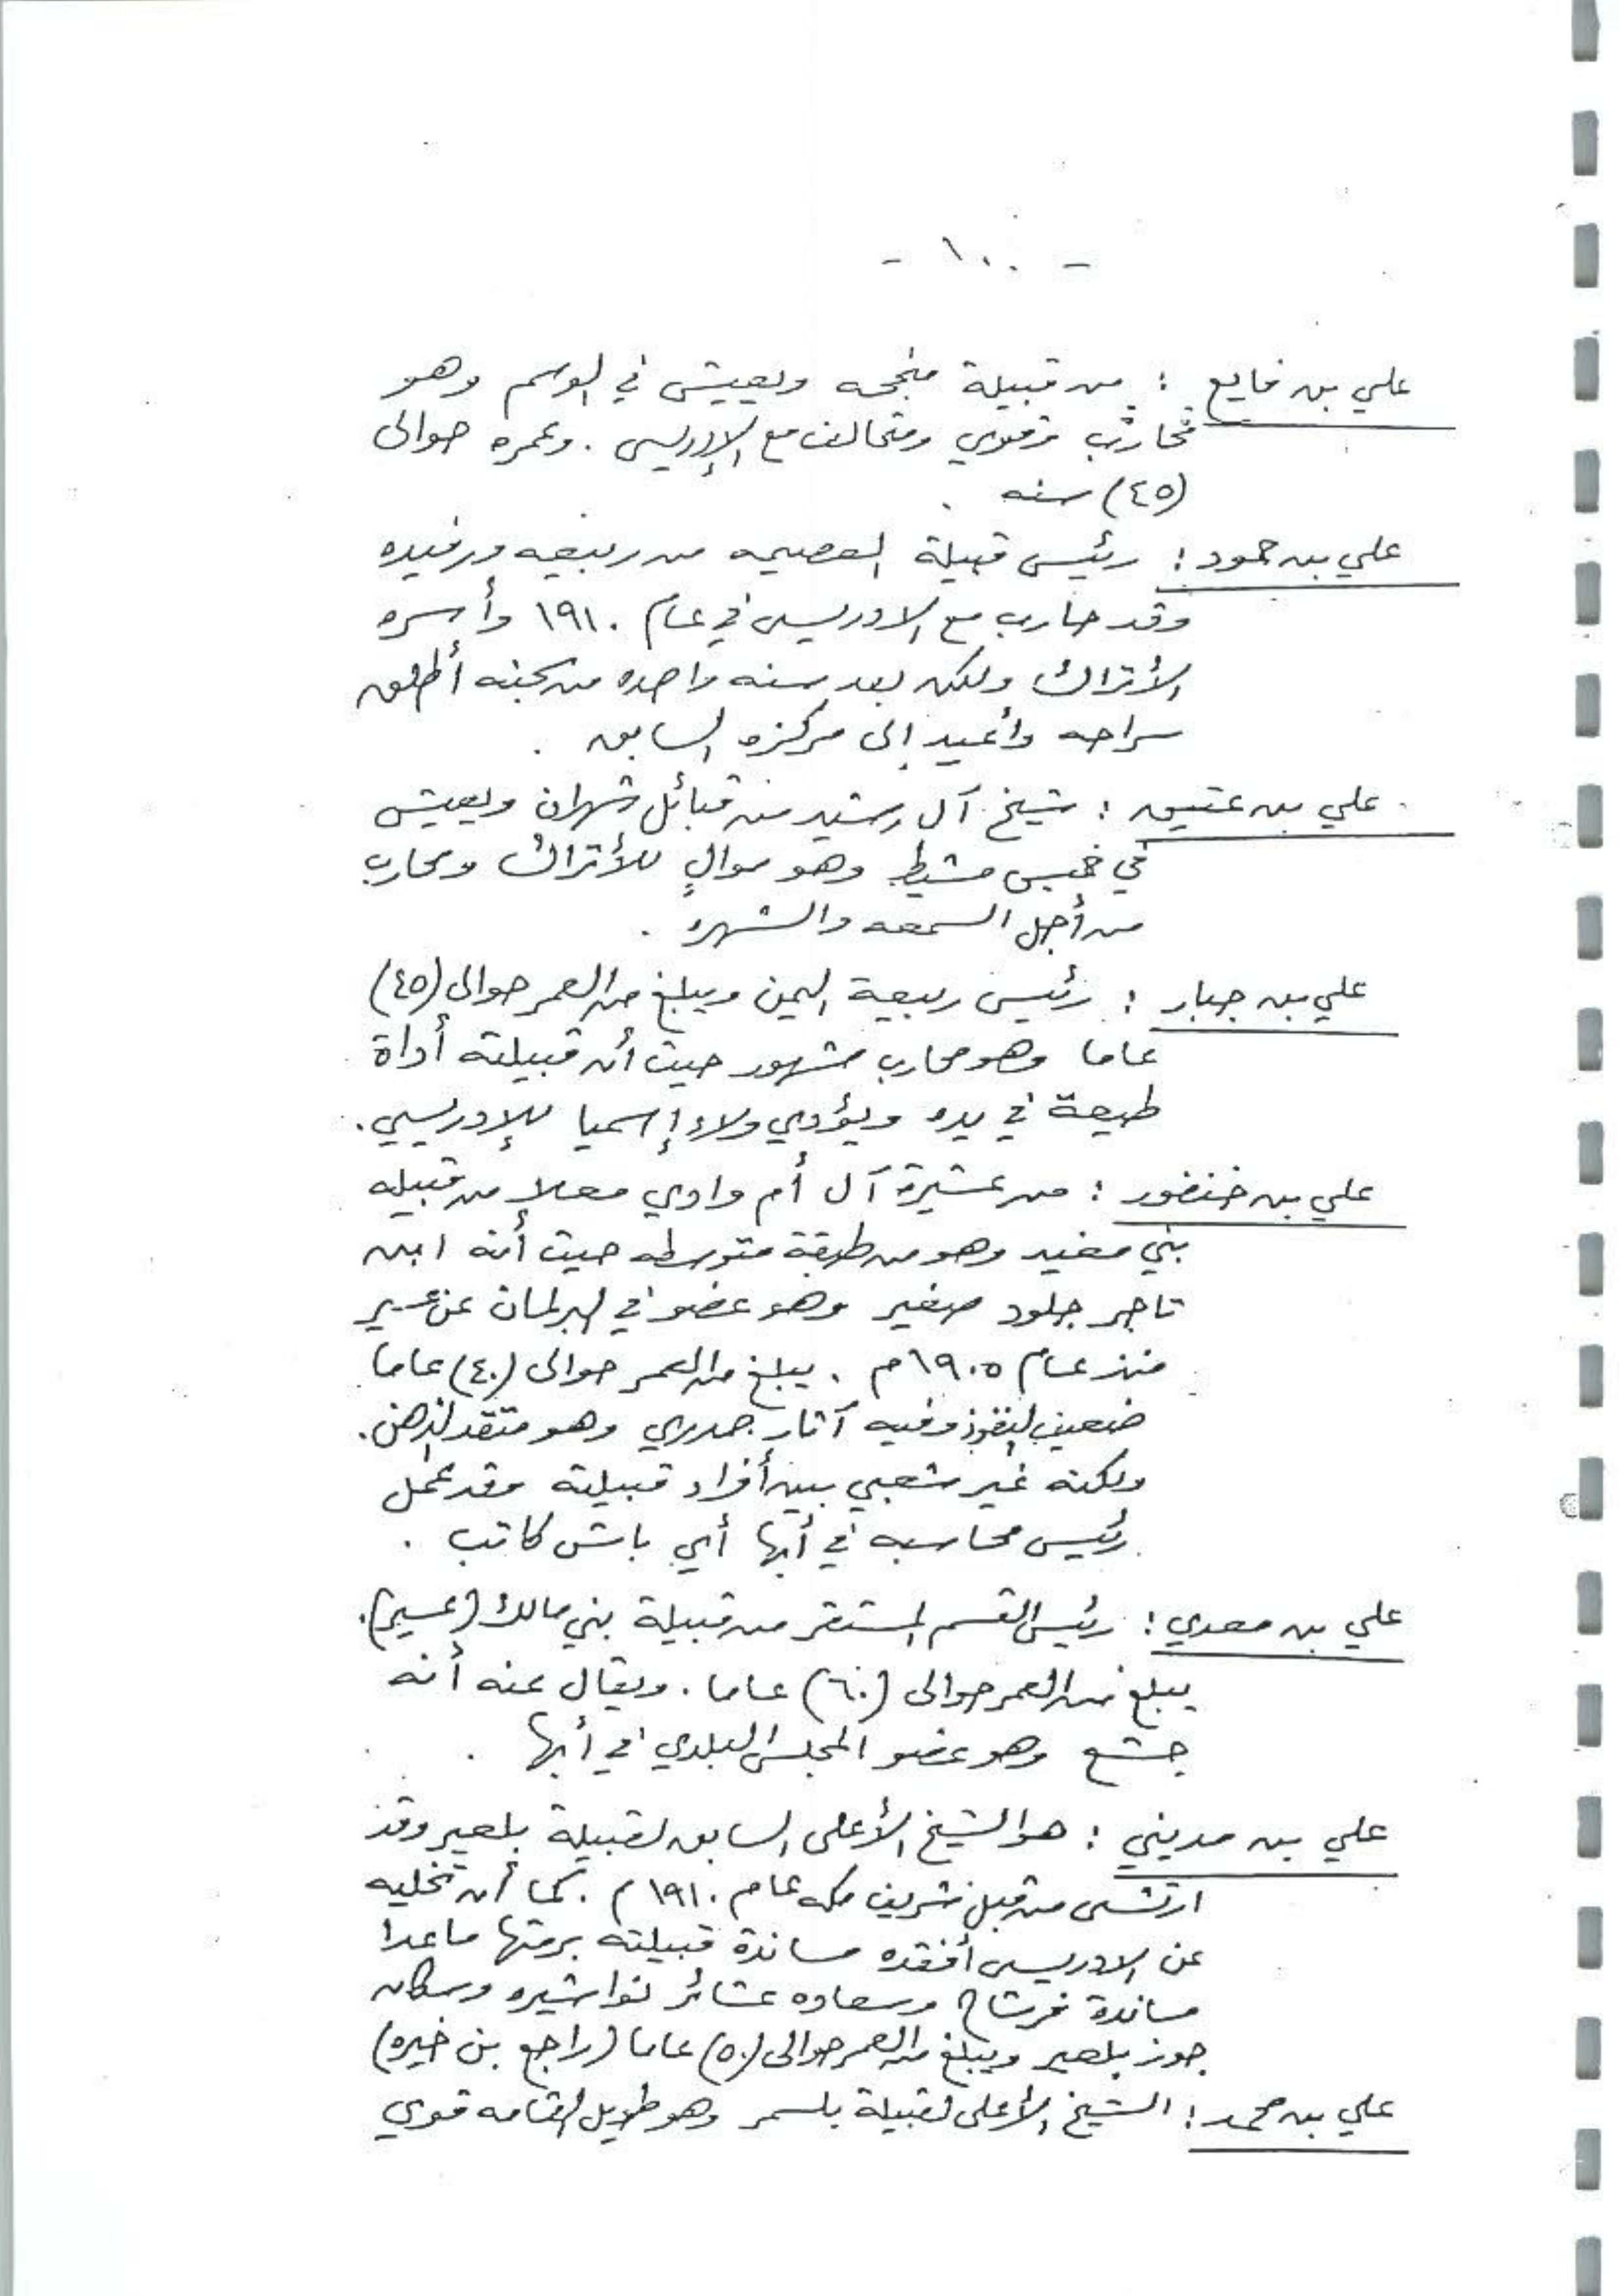 - ١٠٠ -
علي بن فايع : من قبيلة منجحه ويعيش في الوسم وهو
محارب قوي ومتحالف مع الإدريسي . وعمره حوالى
(٤٥) سنه .
علي بن حمود : رئيس قبيلة العصيمه من ربيعه ورفيده
وقد حارب مع الادريسي في عام ١٩١٠ وأسره
الأتراك ولكن بعد سنه واحده من سجنه أطلق
سراحه وأعيد إلى مركزه السابق .
علي بن عتيق : شيخ آل رشيد من قبائل شهران ويعيش
في خميس مشيط وهو موالٍ للأتراك ومحارب
من أجل السمعه والشهره .
علي بن جبار : رئيس ربيعة اليمن ويبلغ من العمر حوالى (٤٥)
عاما وهو محارب مشهور حيث أن قبيلته أداة
طيعة في يده ويؤدي ولاء إسميا للإدريسي .
علي بن خنفور : من عشيرة آل أم وادي معلا من قبيله
بني مغيد وهو من طبقة متوسطه حيث أنه ابن
تاجر جلود صغير وهو عضو في البرلمان عن عسير
منذ عام ١٩٠٥م . يبلغ من العمر حوالى (٤٠) عاما
ضعيف النفوذ وفيه آثار جدري وهو متقد الذهن .
ولكنه غير شعبي بين أفراد قبيلته وقد عمل
رئيس محاسبه في أبها أي باش كاتب .
علي بن معدي : رئيس القسم المستقر من قبيلة بني مالك (عسير) .
يبلغ من العمر حوالى (٦٠) عاما . ويقال عنه أنه
جشع وهو عضو المجلس البلدي في أبها .
علي بن مديني : هو الشيخ الأعلى السابق لقبيلة بلعير وقد
ارتشى من قبل شريف مكه عام ١٩١٠م . كما أن تخليه
عن الادريسي أفقده مساندة قبيلته برمتها ماعدا
مساندة وسعاده عشائر وسكان
بلعير ويبلغ من العمر حوالى (٥٠) عاما (راجع بن خيره)
علي بن محمد : الشيخ الأعلى لقبيلة بلسمر وهو طويل القامه قوي